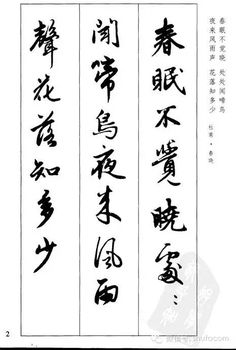 春眠不觉晓 处处闻啼鸟
夜来风雨声 花落知多少
春晓
春眠不覺曉處:
聞啼鳥夜来風雨
聲花落知多少
2